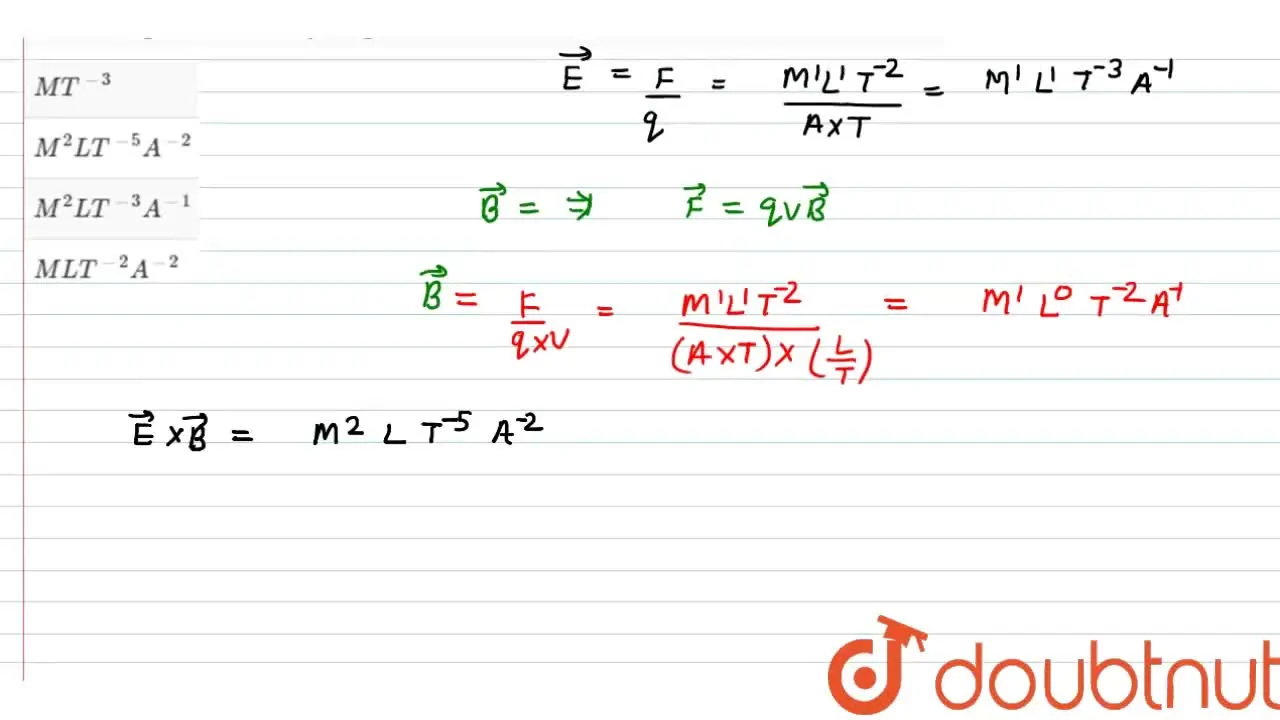 MT⁻³
M²LT⁻⁵A⁻²
M²LT⁻³A⁻¹
MLT⁻²A⁻²
E⃗ = F/q = M¹L¹T⁻²/A×T = M¹ L¹ T⁻³ A⁻¹
B⃗ = ⇒ F⃗ = qvB⃗
B⃗ = F/q×v = M¹L¹T⁻²/(A×T)×(L/T) = M¹ L⁰ T⁻² A⁻¹
E⃗ × B⃗ = M² L T⁻⁵ A⁻²
doubtnut